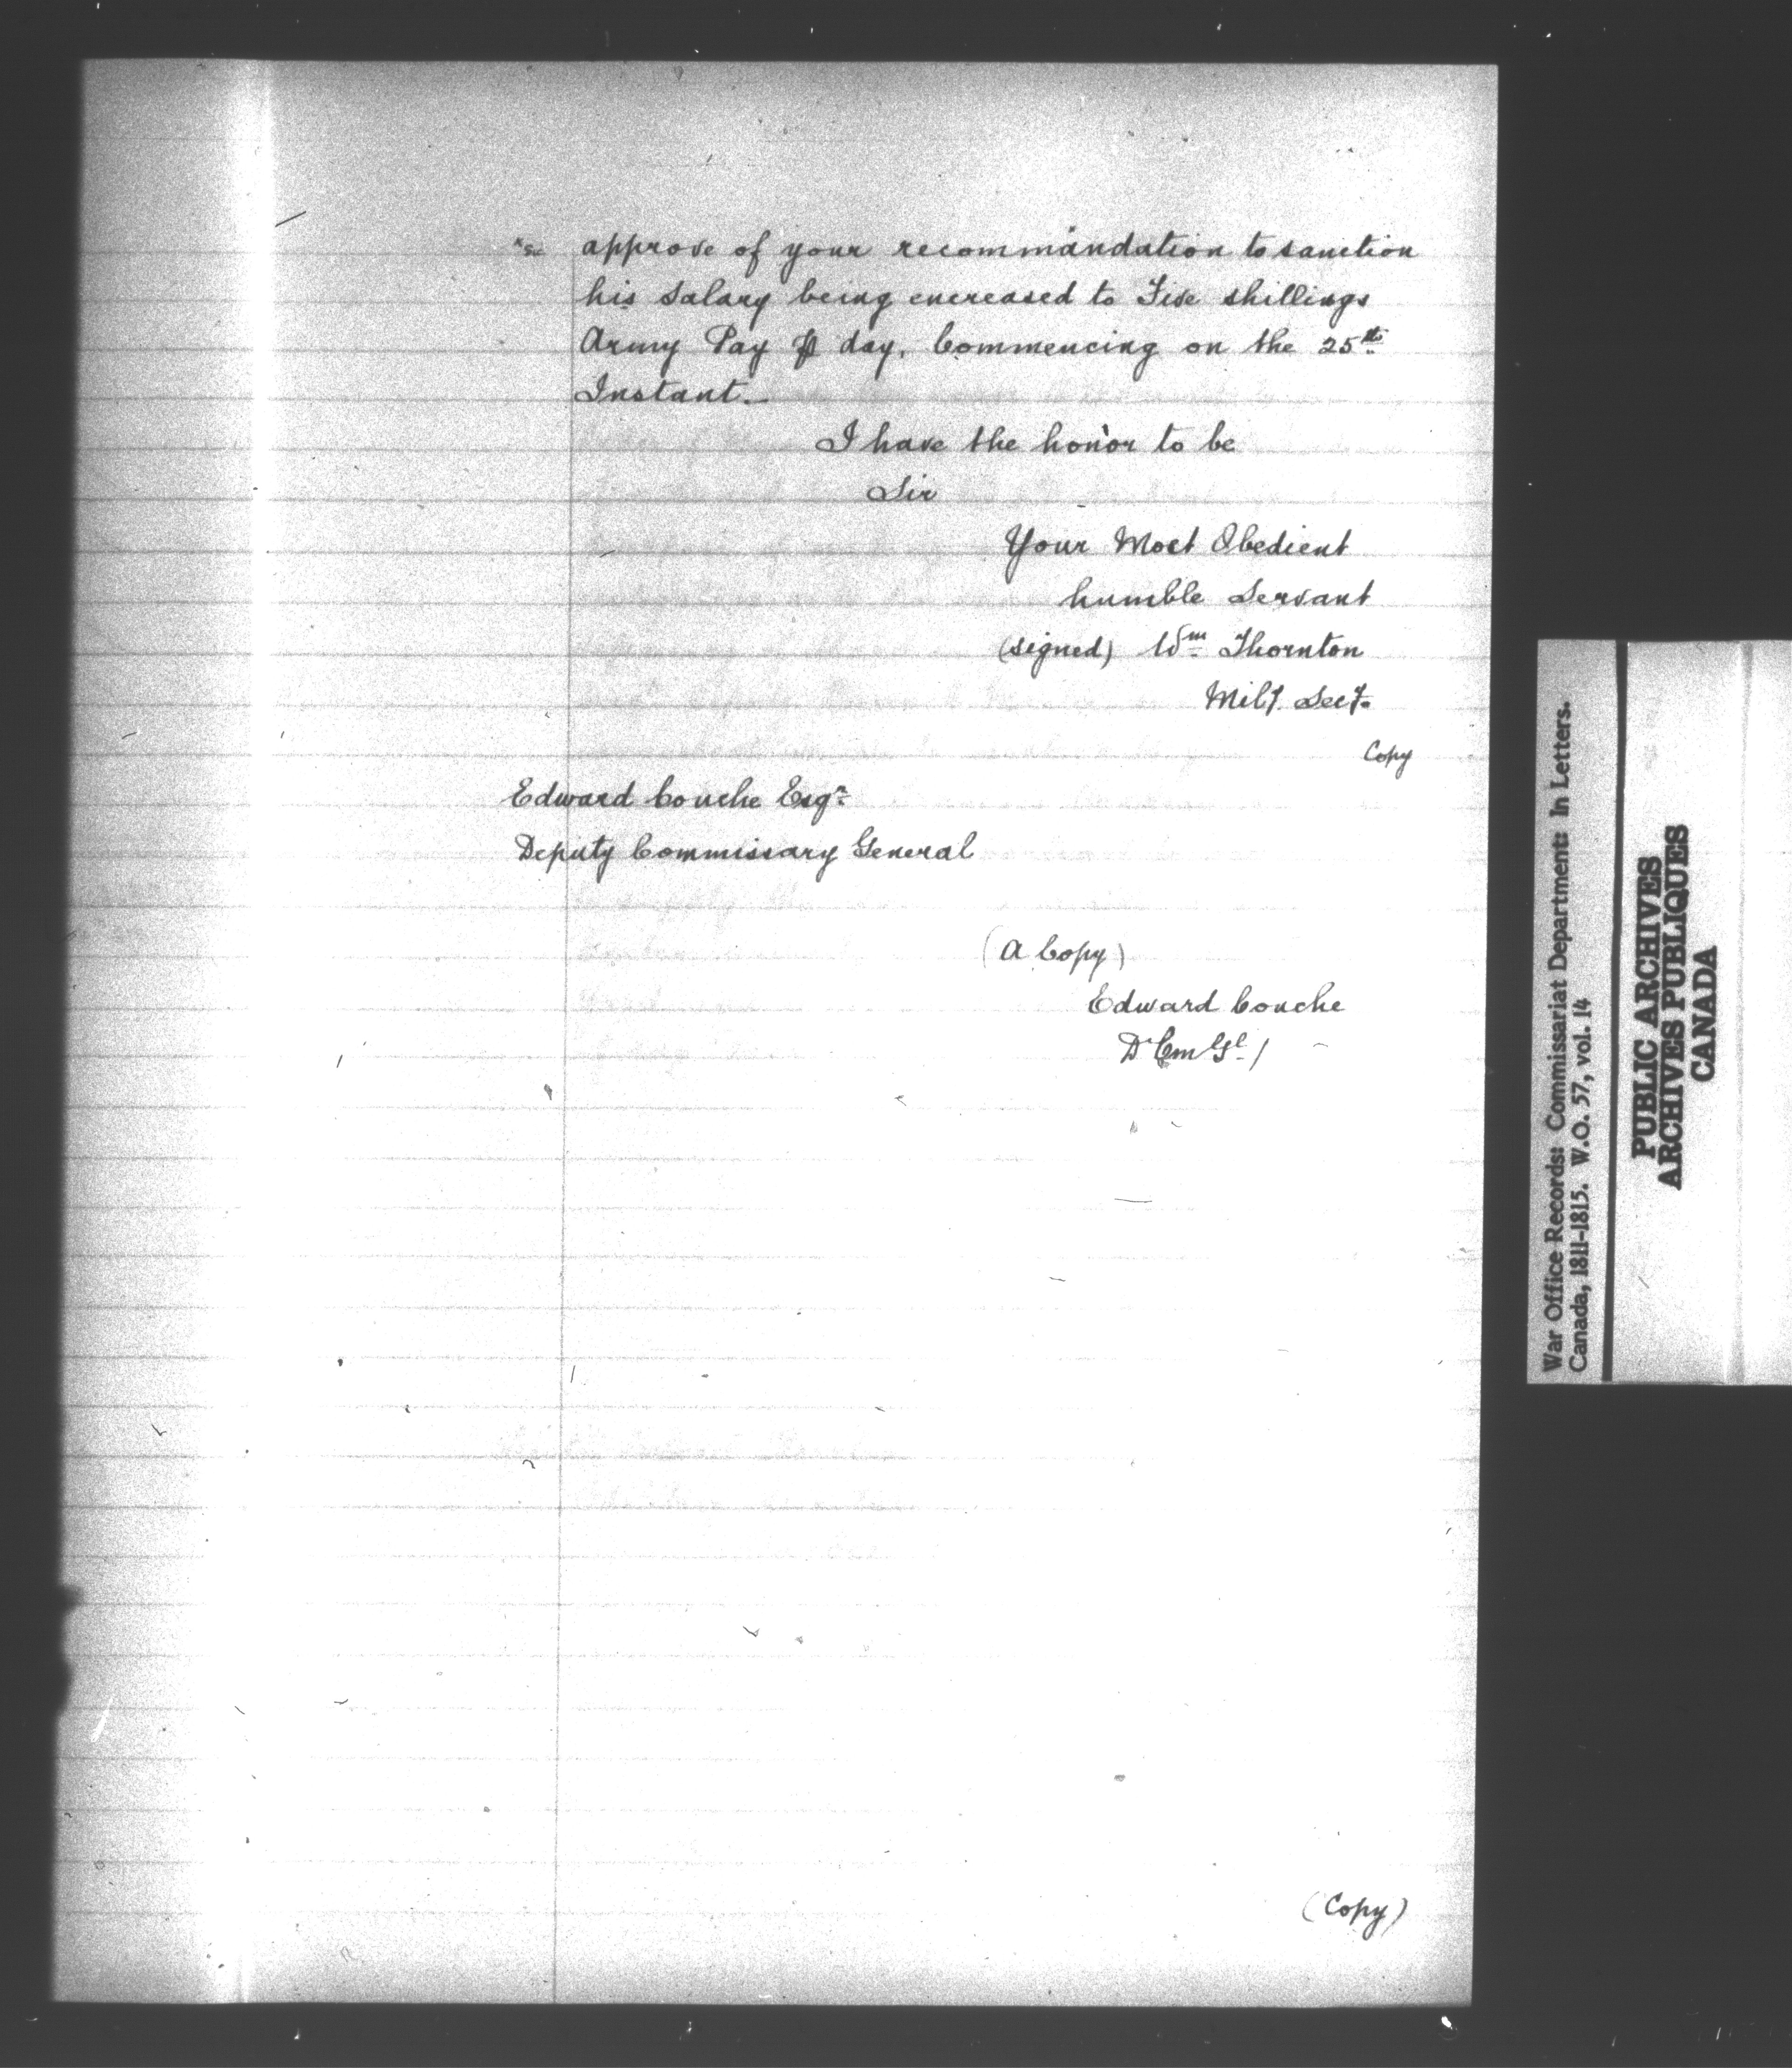 *Sic approve of your recommandation to sanction
his Salary being encreased to Five shillings
Army Pay ⅌ day, Commencing on the 25th
Instant.—
I have the honor to be
Sir
Your Most Obedient
humble Servant
(signed) Wm Thornton
Mily Secy.
Copy
Edward Couche Esqr
Deputy Commissary General
(A Copy)
Edward Couche
D Cm Gl /
(Copy)
War Office Records: Commissariat Department: In Letters.
Canada, 1811-1815. W.O. 57, vol. 14
PUBLIC ARCHIVES
ARCHIVES PUBLIQUES
CANADA